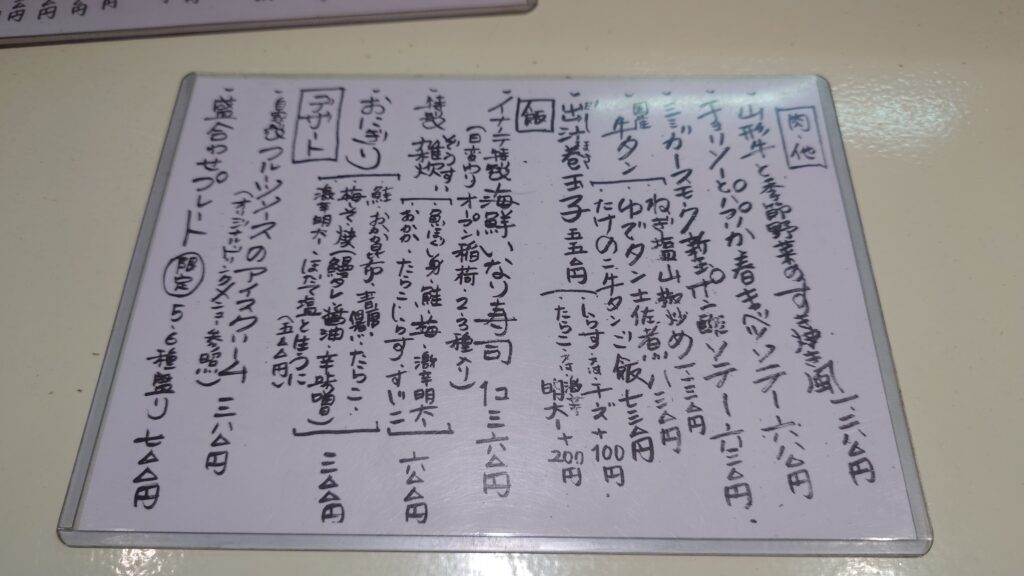 肉・他
・山形牛と季節野菜のすき焼き風 一、一八〇円
・チョリソーとパプリカ春キャベツソテー 六八〇円
・ミミガースモーク新玉ポン酢ソテー 六三〇円
国産牛タン
・ねぎ塩山椒炒め 一、一三〇円
・ゆでタン土佐煮 八三〇円
・たけのこ牛タンご飯 七三〇円
・出汁巻玉子 五五〇円
・しらす・又はチーズ+100円
・たらこ・又は激辛明太+200円
飯
・イナテ特製海鮮いなり寿司 1コ 三六〇円
(日替わりオープン稲荷・2、3種入り)
・特製雑炊
ぞうすい
魚ほぐし身・鮭・梅・激辛明太
おかか・たらこ・しらす・すじこ
六〇〇円
・おにぎり
鮭・おかか・昆布・たらこ・
梅・みそ焼(鰻タレ・醤油・辛味噌)
激辛明太・ほたて塩とば
(五〇〇円)
三〇〇円
デザート
フルーツソースのアイスクリーム 三八〇円
・盛合わせプレート 限定 5・6種盛り 七〇〇円